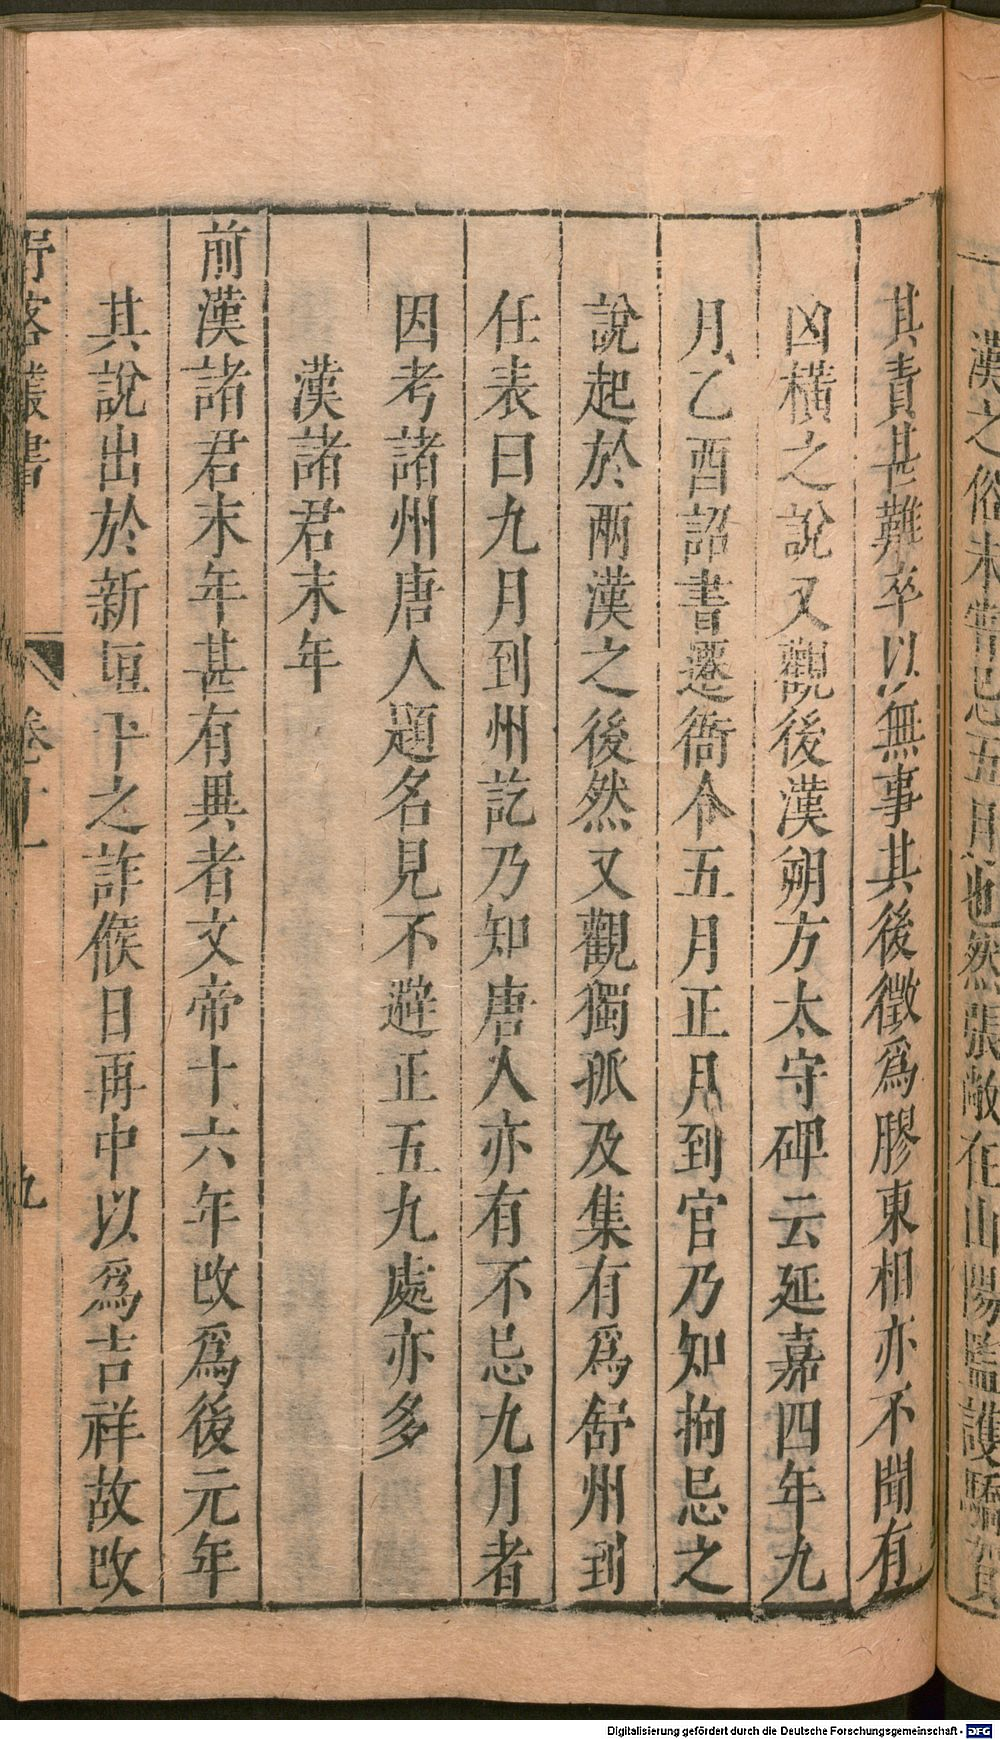 漢之俗未嘗忌五月也然張敞在山陽監護驕賀
其責甚難卒以無事其後徵爲膠東相亦不聞有
凶橫之說又觀後漢朔方太守碑云延嘉四年九
月乙酉詔書遷衙令五月正月到官乃知拘忌之
說起於兩漢之後然又觀獨孤及集有爲舒州到
任表曰九月到州訖乃知唐人亦有不忌九月者
因考諸州唐人題名見不避正五九處亦多
漢諸君末年
前漢諸君末年甚有異者文帝十六年改爲後元年
其說出於新垣平之詐候日再中以爲吉祥故改
野客叢書
卷十
九
Digitalisierung gefördert durch die Deutsche Forschungsgemeinschaft - DFG